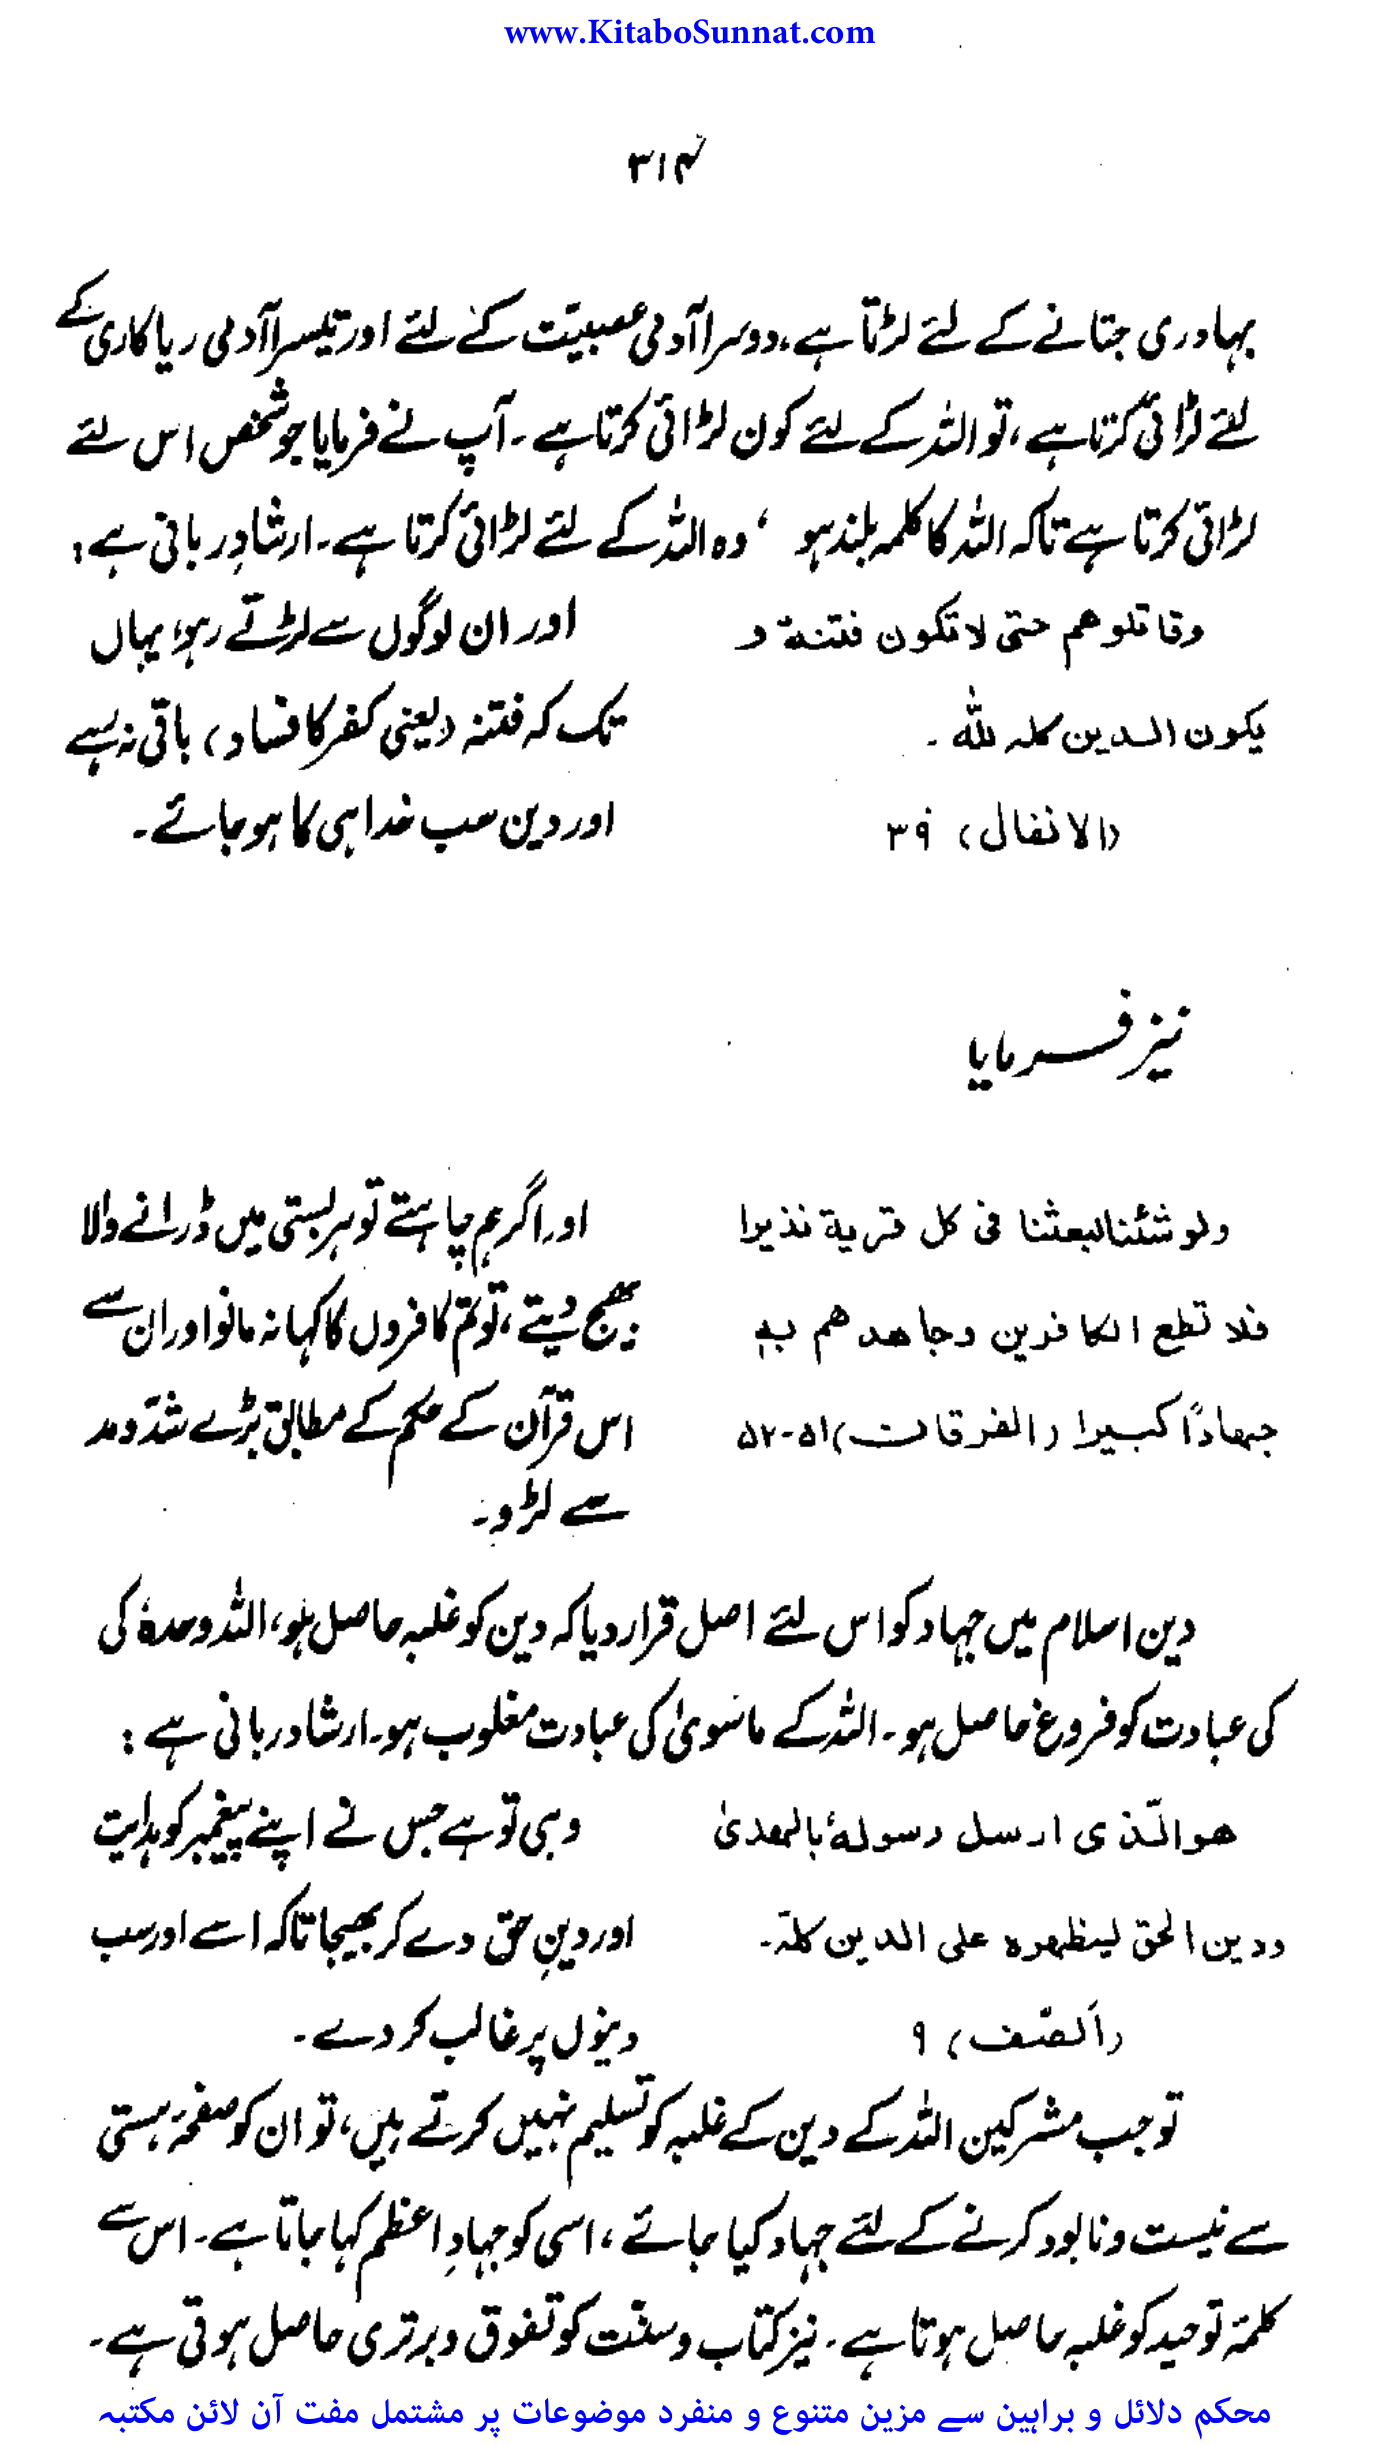 www.KitaboSunnat.com
۳۱۴
بہادری جتانے کے لئے لڑتا ہے، دوسرا آدمی عصبیّت کے لئے اور تیسرا آدمی ریاکاری کے
لئے لڑائی کرتا ہے، تو اللہ کے لئے کون لڑائی کرتا ہے۔ آپ نے فرمایا جو شخص اس لئے
لڑائی کرتا ہے تاکہ اللہ کا کلمہ بلند ہو، وہ اللہ کے لئے لڑائی کرتا ہے۔ ارشادِ ربانی ہے:
وقاتلوهم حتى لا تكون فتنة و
يكون الدين كله لله۔
(الانفال) ۳۹
اور ان لوگوں سے لڑتے رہو، یہاں
تک کہ فتنہ (یعنی کفر کا فساد) باقی نہ رہے
اور دین سب خدا ہی کا ہو جائے۔
نیز فرمایا
ولو شئنا لبعثنا فی كل قرية نذيرا
فلا تطع الكافرين وجاهدهم به
جهادًا كبيرا (الفرقان) ۵۱-۵۲
اور اگر ہم چاہتے تو ہر بستی میں ڈرانے والا
بھیج دیتے، تو تم کافروں کا کہا نہ مانو اور ان سے
اس قرآن کے حکم کے مطابق بڑے شدّ و مد
سے لڑو۔
دین اسلام میں جہاد کو اس لئے اصل قرار دیا کہ دین کو غلبہ حاصل ہو، اللہ وحدہٗ کی
کی عبادت کو فروغ حاصل ہو۔ اللہ کے ماسویٰ کی عبادت مغلوب ہو۔ ارشاد ربانی ہے:
هو الّذی ارسل رسولهٗ بالهدىٰ
ودين الحق ليظهره على الدين كلّه۔
(الصّف) ۹
وہی تو ہے جس نے اپنے پیغمبر کو ہدایت
اور دینِ حق دے کر بھیجا تاکہ اسے اور سب
دینوں پر غالب کر دے۔
تو جب مشرکین اللہ کے دین کے غلبہ کو تسلیم نہیں کرتے ہیں، تو ان کو صفحۂ ہستی
سے نیست و نابود کرنے کے لئے جہاد کیا جائے، اسی کو جہادِ اعظم کہا جاتا ہے۔ اس سے
کلمۂ توحید کو غلبہ حاصل ہوتا ہے۔ نیز کتاب و سنّت کو تفوق و برتری حاصل ہوتی ہے۔
محکم دلائل و براہین سے مزین متنوع و منفرد موضوعات پر مشتمل مفت آن لائن مکتبہ